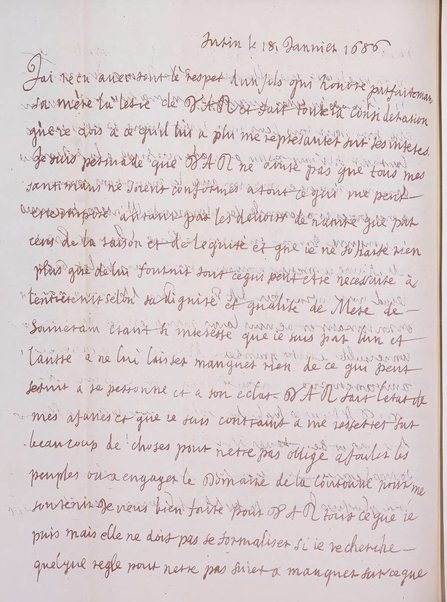 Turin le 18 Janvier 1686
J'ai recu avec tout le respet d'un fils qui honore parfaitemant
sa mère la letre de V A R et fait toute la consideration
que ie dois a ce qu'il lui a plu me represanter sur ses interes.
Je suis persuadé que V A R ne doute pas que tous mes
santimans ne soient conformes a tout ce qui me peut
estre inspiré autant par les devoirs de nature que par
ceux de la raison et de l'equité et que ie ne souhaite rien
plus que de lui fournir tout ce qui peut etre necessaire à
l'entretenir selon sa dignité et qualité de Mere de
Souverain étant interessé que ie suis par l'un et
l'autre a ne lui laisser manquer rien de ce qui peut
servir a sa personne et a son eclat. V A R sait l'etat de
mes afaires et que ie suis contraint a me resserrer sur
beaucoup de choses pour n'etre pas obligé a fouler les
peuples ou a engager le Domaine de la couronne pour me
soutenir Je veus bien faire pour V A R tout ce que ie
puis mais elle ne doit pas se formaliser si ie recherche
quelque regle pour n'etre pas sujet a manquer sur ce que